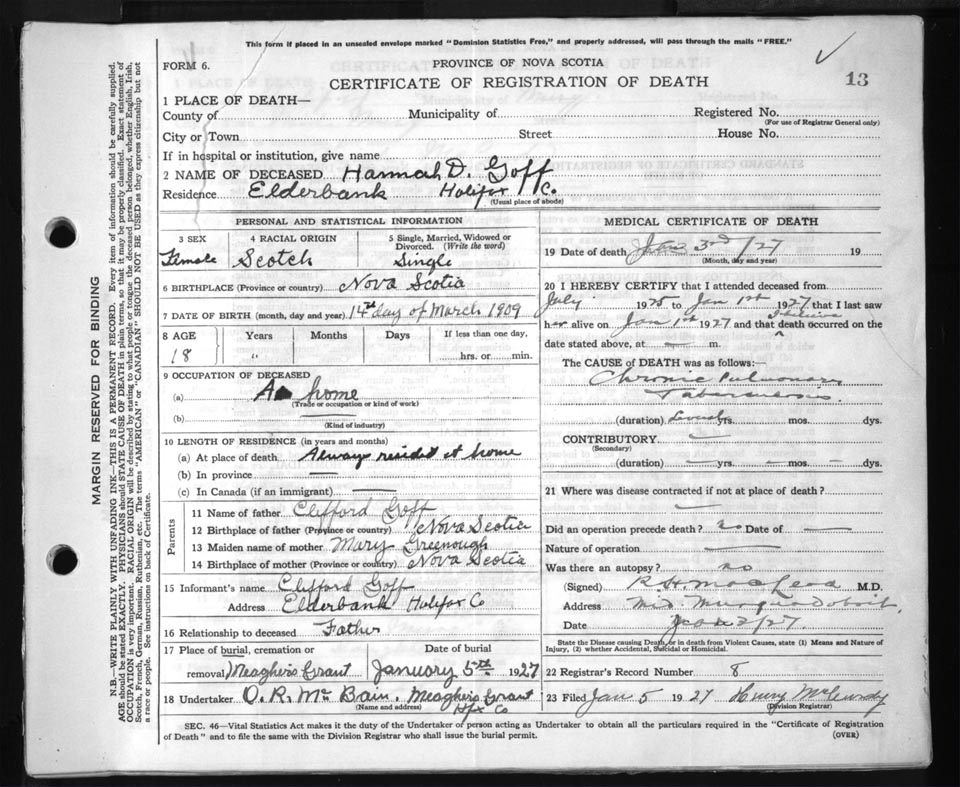 This form if placed in an unsealed envelope marked "Dominion Statistics Free," and properly addressed, will pass through the mails "FREE."
FORM 6.
PROVINCE OF NOVA SCOTIA
CERTIFICATE OF REGISTRATION OF DEATH
13
1 PLACE OF DEATH—
County of Municipality of Registered No.
(For use of Registrar General only)
City or Town Street House No.
If in hospital or institution, give name
2 NAME OF DECEASED Hannah D. Goff
Residence Elderbank Halifax Co.
(Usual place of abode)
PERSONAL AND STATISTICAL INFORMATION
3 SEX 4 RACIAL ORIGIN 5 Single, Married, Widowed or Divorced. (Write the word)
Female Scotch Single
6 BIRTHPLACE (Province or country) Nova Scotia
7 DATE OF BIRTH (month, day and year) 14th day of March 1909
8 AGE Years Months Days If less than one day,
18 " hrs. or min.
9 OCCUPATION OF DECEASED
(a) At home
(Trade or occupation or kind of work)
(b)
(Kind of industry)
10 LENGTH OF RESIDENCE (in years and months)
(a) At place of death Always resided at home
(b) In province
(c) In Canada (if an immigrant)
Parents
11 Name of father Clifford Goff
12 Birthplace of father (Province or country) Nova Scotia
13 Maiden name of mother Mary Greenough
14 Birthplace of mother (Province or country) Nova Scotia
15 Informant's name Clifford Goff
Address Elderbank Halifax Co
16 Relationship to deceased Father
17 Place of burial, cremation or removal Meaghers Grant Date of burial January 5th 1927
18 Undertaker O. R. McBain. Meaghers Grant
(Name and address) Hfx Co
MEDICAL CERTIFICATE OF DEATH
19 Date of death Jan 3rd/27 19
(Month, day and year)
20 I HEREBY CERTIFY that I attended deceased from
July 1925 to Jan 1st 1927 that I last saw
her alive on Jan 1st 1927 and that I believe death occurred on the
date stated above, at m.
The CAUSE of DEATH was as follows:
Chronic Pulmonary
Tuberculosis
(duration) Several yrs. mos. dys.
CONTRIBUTORY
(Secondary)
(duration) yrs. mos. dys.
21 Where was disease contracted if not at place of death?
Did an operation precede death? no Date of
Nature of operation
Was there an autopsy? no
(Signed) R H MacLeod M.D.
Address Mid. Musquodoboit.
Date Jan 3/27.
State the Disease causing Death, or in death from Violent Causes, state (1) Means and Nature of Injury, (2) whether Accidental, Suicidal or Homicidal.
22 Registrar's Record Number 8
23 Filed Jan 5 1927 Henry
(Division Registrar)
SEC. 46—Vital Statistics Act makes it the duty of the Undertaker or person acting as Undertaker to obtain all the particulars required in the "Certificate of Registration
of Death" and to file the same with the Division Registrar who shall issue the burial permit. (OVER)
MARGIN RESERVED FOR BINDING
N.B.—WRITE PLAINLY WITH UNFADING INK—THIS IS A PERMANENT RECORD. Every item of information should be carefully supplied.
AGE should be stated EXACTLY. PHYSICIANS should STATE CAUSE OF DEATH in plain terms, so that it may be properly classified. Exact statement of
OCCUPATION is very important. RACIAL ORIGIN will be described by stating to what people or tongue the deceased person belonged, whether English, Irish,
Scotch, French, German, Russian, Ruthenian, etc. The terms "AMERICAN" or "CANADIAN" SHOULD NOT BE USED as they express citizenship but not
a race or people. See instructions on back of Certificate.